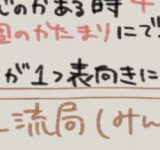 じのかある時
国のかたまりにで
が1つ表向きに
流局(みん